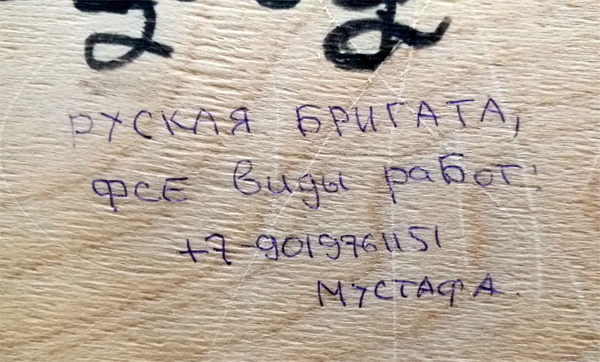 РУСКАЯ БРИГАТА,
ФСЕ виды работ!
+7-9019761151
МУСТАФА.